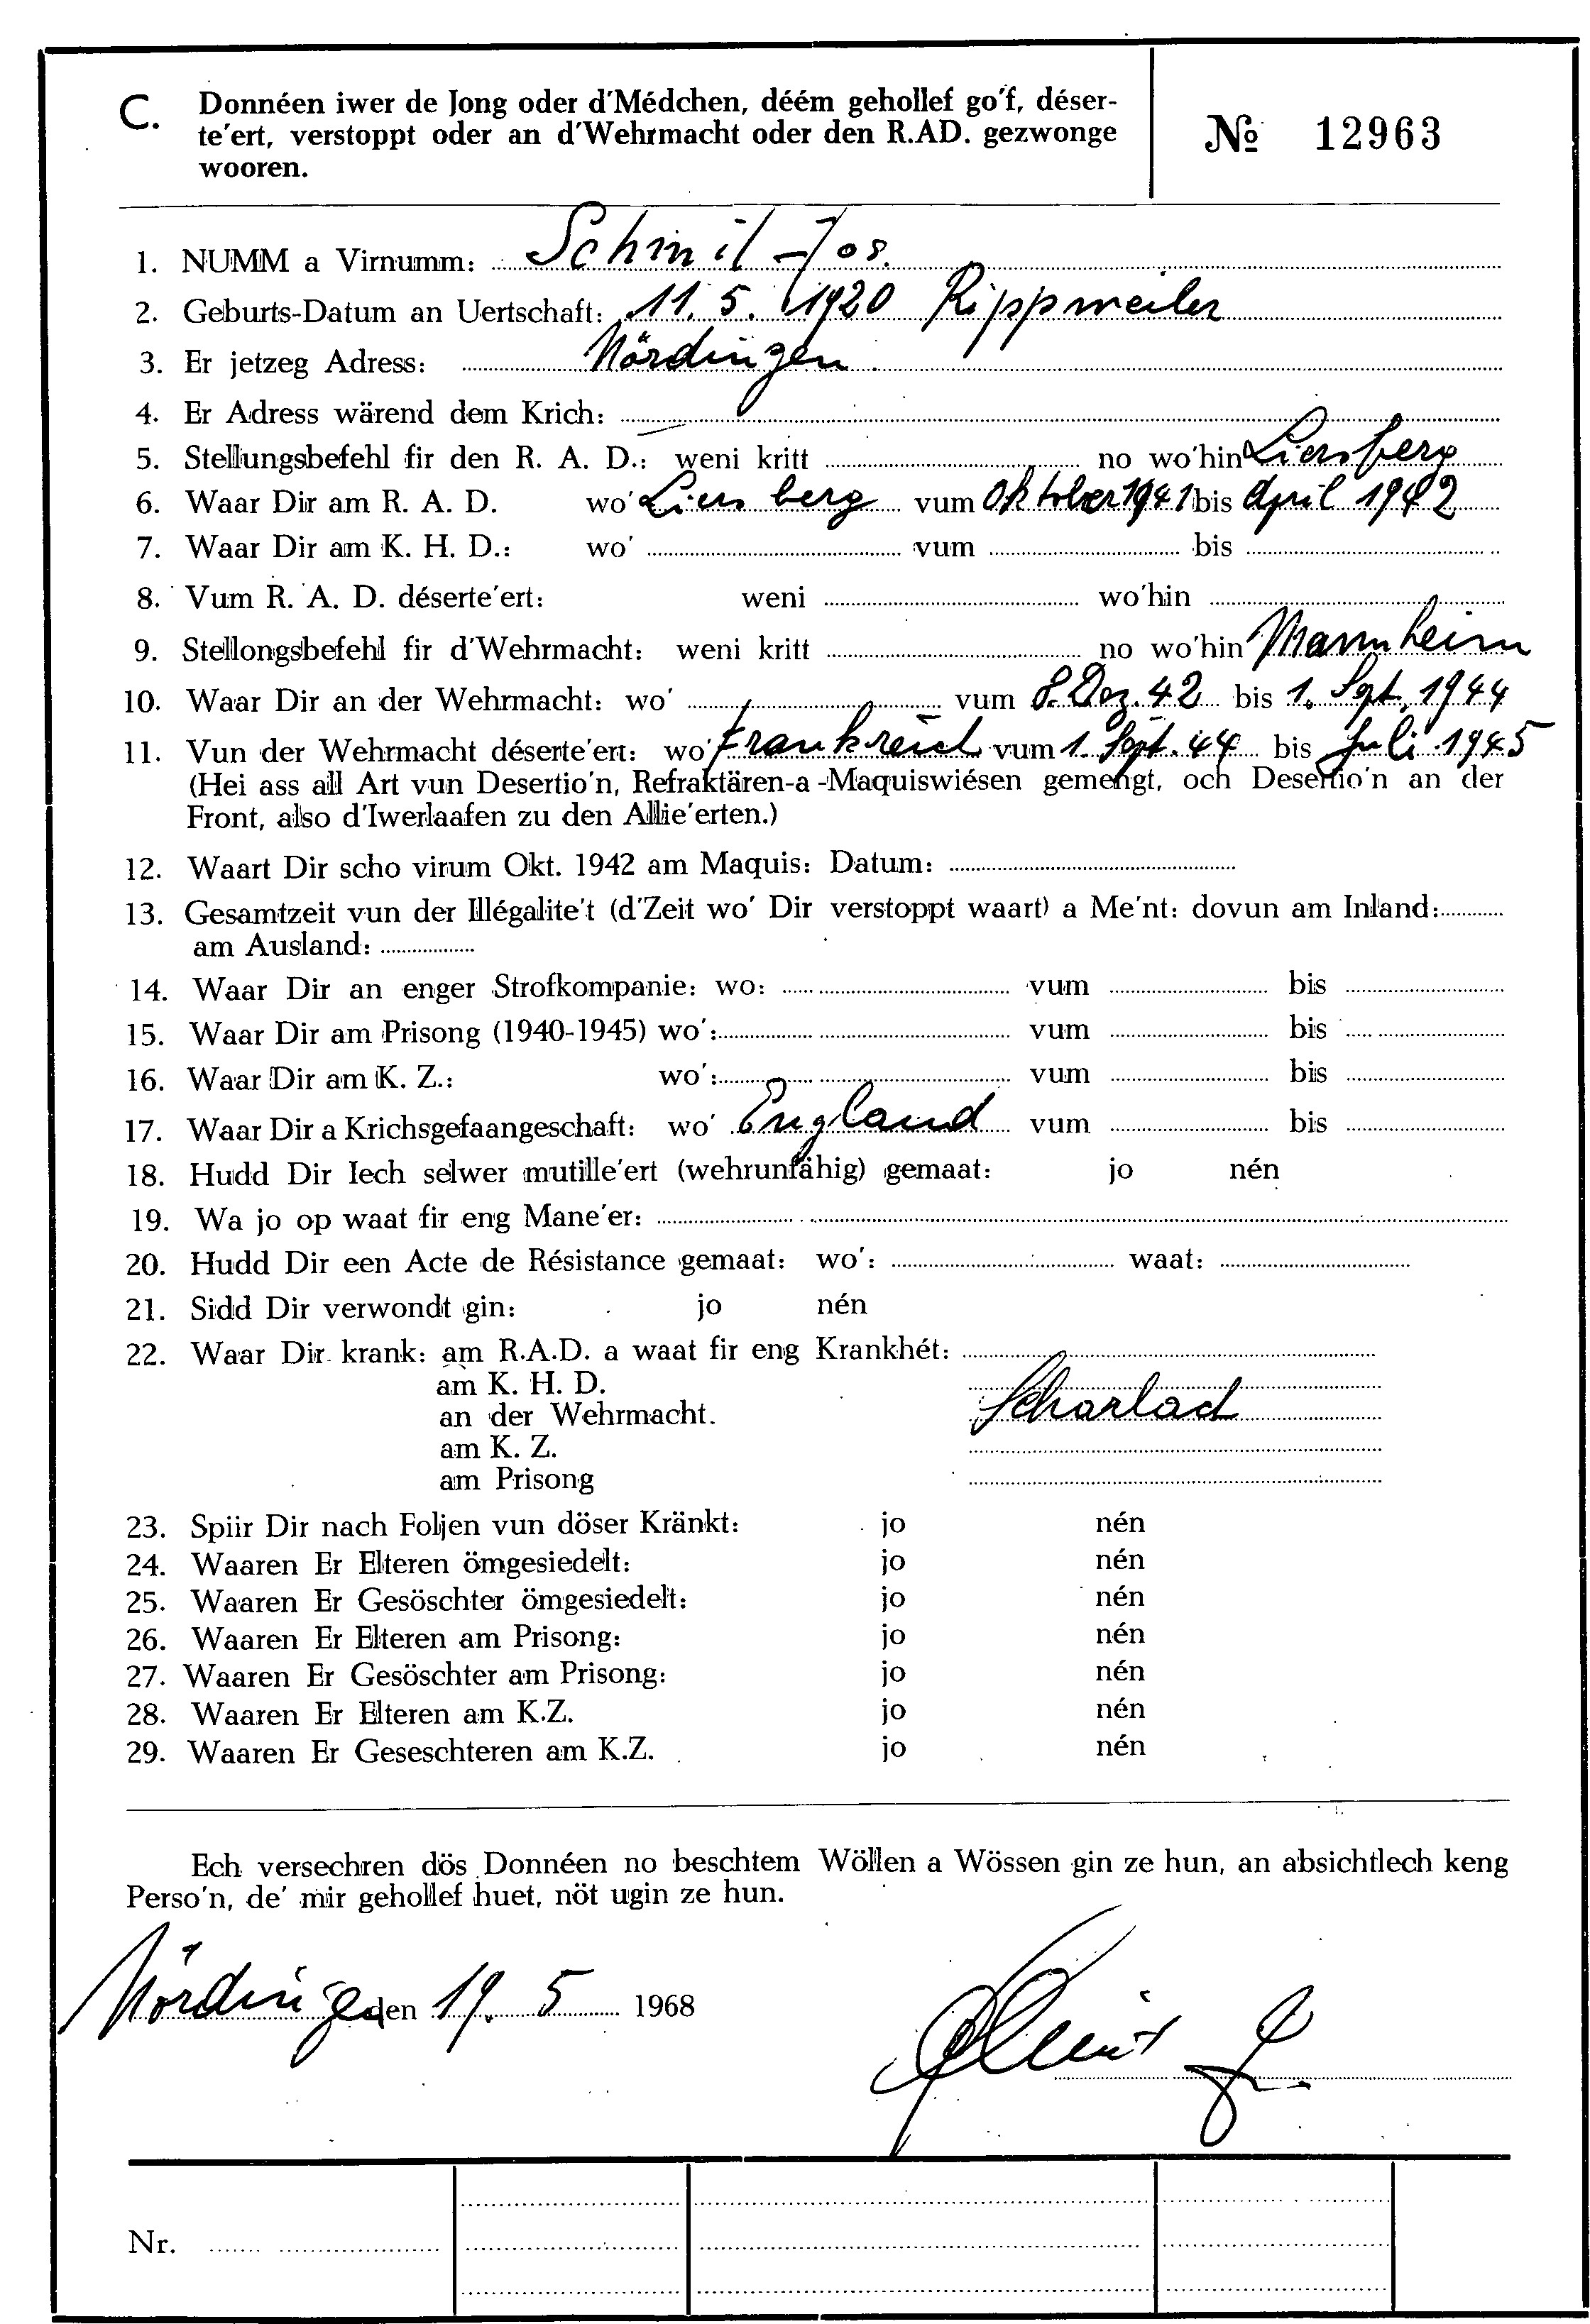 C. Donnéen iwer de Jong oder d'Médchen, déém gehollef go'f, déser-
te'ert, verstoppt oder an d'Wehrmacht oder den R.AD. gezwonge
wooren.
№ 12963
1. NUMM a Virnumm: Schmit - Jos.
2. Geburts-Datum an Uertschaft: 11. 5. 1920 Rippweiler
3. Er jetzeg Adress: Nördingen
4. Er Adress wärend dem Krich:
5. Stellungsbefehl fir den R. A. D.: weni kritt no wo'hin Liersberg
6. Waar Dir am R. A. D. wo' Liersberg vum Oktober 1941 bis April 1942
7. Waar Dir am K. H. D.: wo' vum bis
8. Vum R. A. D. déserte'ert: weni wo'hin
9. Stellongsbefehl fir d'Wehrmacht: weni kritt no wo'hin Mannheim
10. Waar Dir an der Wehrmacht: wo' vum 8. Dez. 42 bis 1. Sept. 1944
11. Vun der Wehrmacht déserte'ert: wo' Frankreich vum 1. Sept. 44 bis Juli 1945
(Hei ass all Art vun Desertio'n, Refraktären-a -Maquiswiésen gemengt, och Desertio'n an der
Front, also d'Iwerlaafen zu den Allie'erten.)
12. Waart Dir scho virum Okt. 1942 am Maquis: Datum:
13. Gesamtzeit vun der Illégalite't (d'Zeit wo' Dir verstoppt waart) a Me'nt: dovun am Inland:
am Ausland:
14. Waar Dir an enger Strofkompanie: wo: vum bis
15. Waar Dir am Prisong (1940-1945) wo': vum bis
16. Waar Dir am K. Z.: wo': vum bis
17. Waar Dir a Krichsgefaangeschaft: wo' England vum bis
18. Hudd Dir Iech selwer mutille'ert (wehrunfähig) gemaat: jo nén
19. Wa jo op waat fir eng Mane'er:
20. Hudd Dir een Acte de Résistance gemaat: wo': waat:
21. Sidd Dir verwondt gin: jo nén
22. Waar Dir krank: am R.A.D. a waat fir eng Krankhét:
am K. H. D.
an der Wehrmacht. Scharlach
am K. Z.
am Prisong
23. Spiir Dir nach Foljen vun döser Kränkt: jo nén
24. Waaren Er Elteren ömgesiedelt: jo nén
25. Waaren Er Gesöschter ömgesiedelt: jo nén
26. Waaren Er Elteren am Prisong: jo nén
27. Waaren Er Gesöschter am Prisong: jo nén
28. Waaren Er Elteren am K.Z. jo nén
29. Waaren Er Geseschteren am K.Z. jo nén
Ech versechren dös Donnéen no beschtem Wöllen a Wössen gin ze hun, an absichtlech keng
Perso'n, de' mir gehollef huet, nöt ugin ze hun.
Nördingen den 19. 5 1968
Schmit J.
Nr.